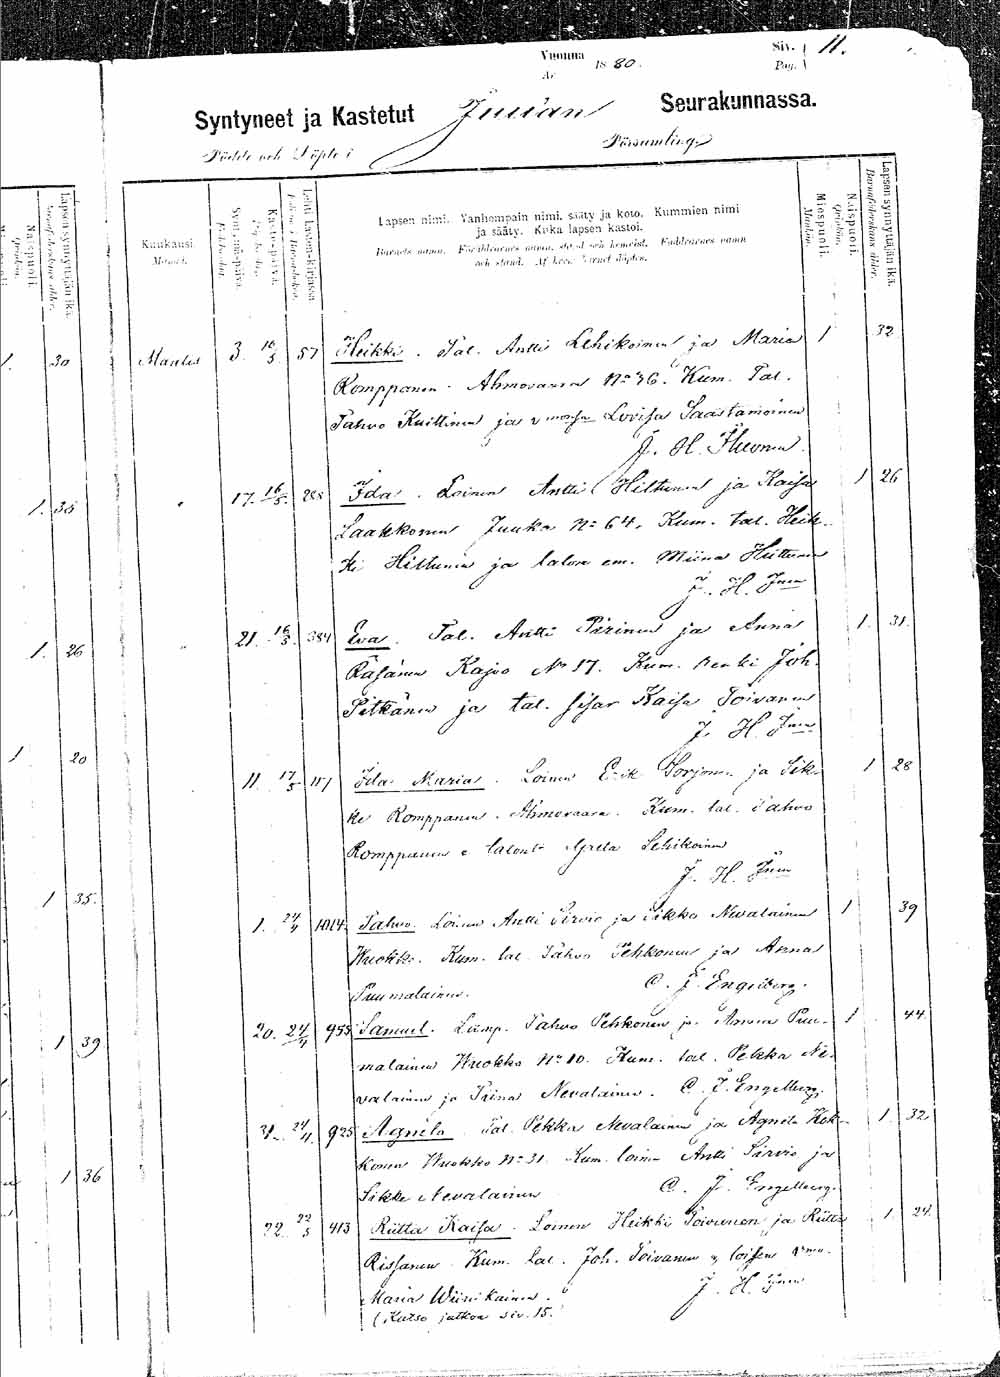 Vuonna 1880. Siv. 11.
År Pag.
Syntyneet ja Kastetut Juuan Seurakunnassa.
Födde och Döpte i Församling
Kuukausi.
Månad.
Synt. päivä.
Kaste-päivä.
Lapsen nimi. Vanhempain nimi, sääty ja koto. Kummien nimi
ja sääty. Kuka lapsen kastoi.
Barnets namn. Föräldrarnes namn, stånd och hemvist. Faddrarnes namn
och stånd. Af hvem barnet döptes.
Miespuoli.
Mankön.
Naispuoli.
Qvinkön.
Lapsen synnyttäjän ikä.
Barnaföderskans ålder.
1. 30 Martti 3. 16/5 57 Heikki. Tal. Antti Lehikoinen ja Maria 1 32
Romppanen. Ahmovaara No 36. Kum. Tal.
Tahvo Kuittinen ja vmonsa Lovisa Saastamoinen
J. H.
1. 35 " 17. 16/5. 288 Ida. Loinen Antti Hiltunen ja Kaisa 1 26
Laakkonen Juuka No 64. Kum. tal. Heik-
ki Hiltunen ja talon em. Miina Hiltunen
J. H.
1. 26 " 21. 16/5. 384 Eva. Tal. Antti Pirinen ja Anna 1. 31.
Räsänen Kajoo No 17. Kum. renki Joh.
Pitkänen ja tal. sisar Kaisa Toivanen
J. H.
1 20
11. 17/5 Ida Maria. Loinen Erik Sorjonen ja Sik- 1 28
ke Romppanen. Ahmovaara. Kum. tal. Tahvo
Romppanen Grella Lehikoinen
J. H.
1 35.
1. 24/4 1014 Tahvo. Loinen Antti Sirvio ja Sikka Nevalainen 1 39
Wuokko. Kum. tal. Tahvo Pehkonen ja Anna
Puumalainen. C. J. Engelberg.
1 39
20. 24/4 955 Samuel. Lamp. Tahvo Pehkonen ja Anna Puu- 1 44.
malainen Wuokko No 10. Kum. tal. Pekka Ne-
valainen ja Triina Nevalainen. C. J. Engelberg.
31. 24/4. 925 Agneta. Tal. Pekka Nevalainen ja Agneta Kok- 1. 32
konen Wuokko No 31. Kum. loinen Antti Sirvio ja
Sikke Nevalainen C. J. Engelberg.
1 36
22. 22/5 413 Riitta Kaisa. Loinen Heikki Toivanen ja Riitta 1. 24.
Rissanen. Kum. tal. Joh. Toivanen loisen vmo.
Maria Wiinikainen. J. H.
(Katso jatkoa siv. 15.)